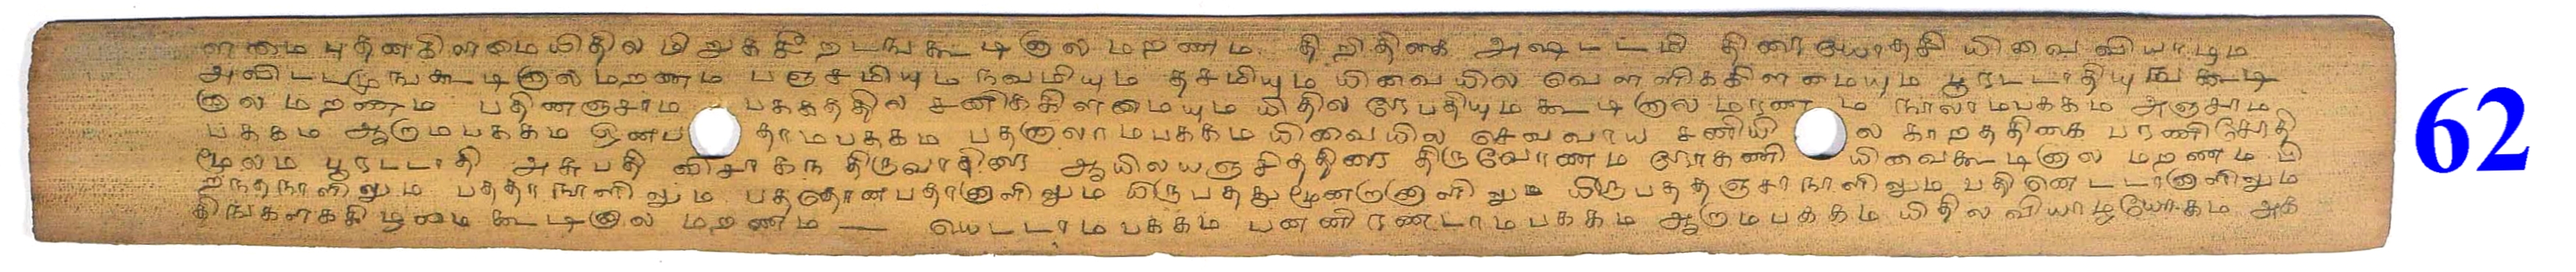 ள மை புதன கிள மை யிதில மிறுகசீறடங கூடினால மறணம திறிதிகை அஷடடமி திரையோதசி யிவை வியாழம
அவிடடமுங கூடினால மறணம பஞசமியும நவமியும தசமியும யிவையில வெளளிககிளமையும பூரடடாதியுங கூடி
னால மறணம பதினஞசாம பககததில சனிககிளமையும யிதில ரேபதியும கூடினால மரண ம நாலாமபககம அஞசாம
பககம ஆறாமபககம ஒனப தாமபககம பதனாலாமபககம யிவையில செவவாய சனியி ல காறததிகை பரணி சோதி
மூலம பூரடடாதி அசுபதி விசாகந திருவாதிரை ஆயிலயஞ சிததிரை திருவோணம ரோகணி யிவைகூடினால மறணம பி
றநதநாளிலும பததாநாளிலும பதஞொனபதானாளிலும யிருபதது மூனறானாளிலும யிருபததஞசாநாளிலும பதினெடடானாளிலும
திஙகளககிழமை கூடினால மறணம — யெடடாமபககம பனனிரணடாமபககம ஆறாமபககம யிதில வியாழயோகம அக